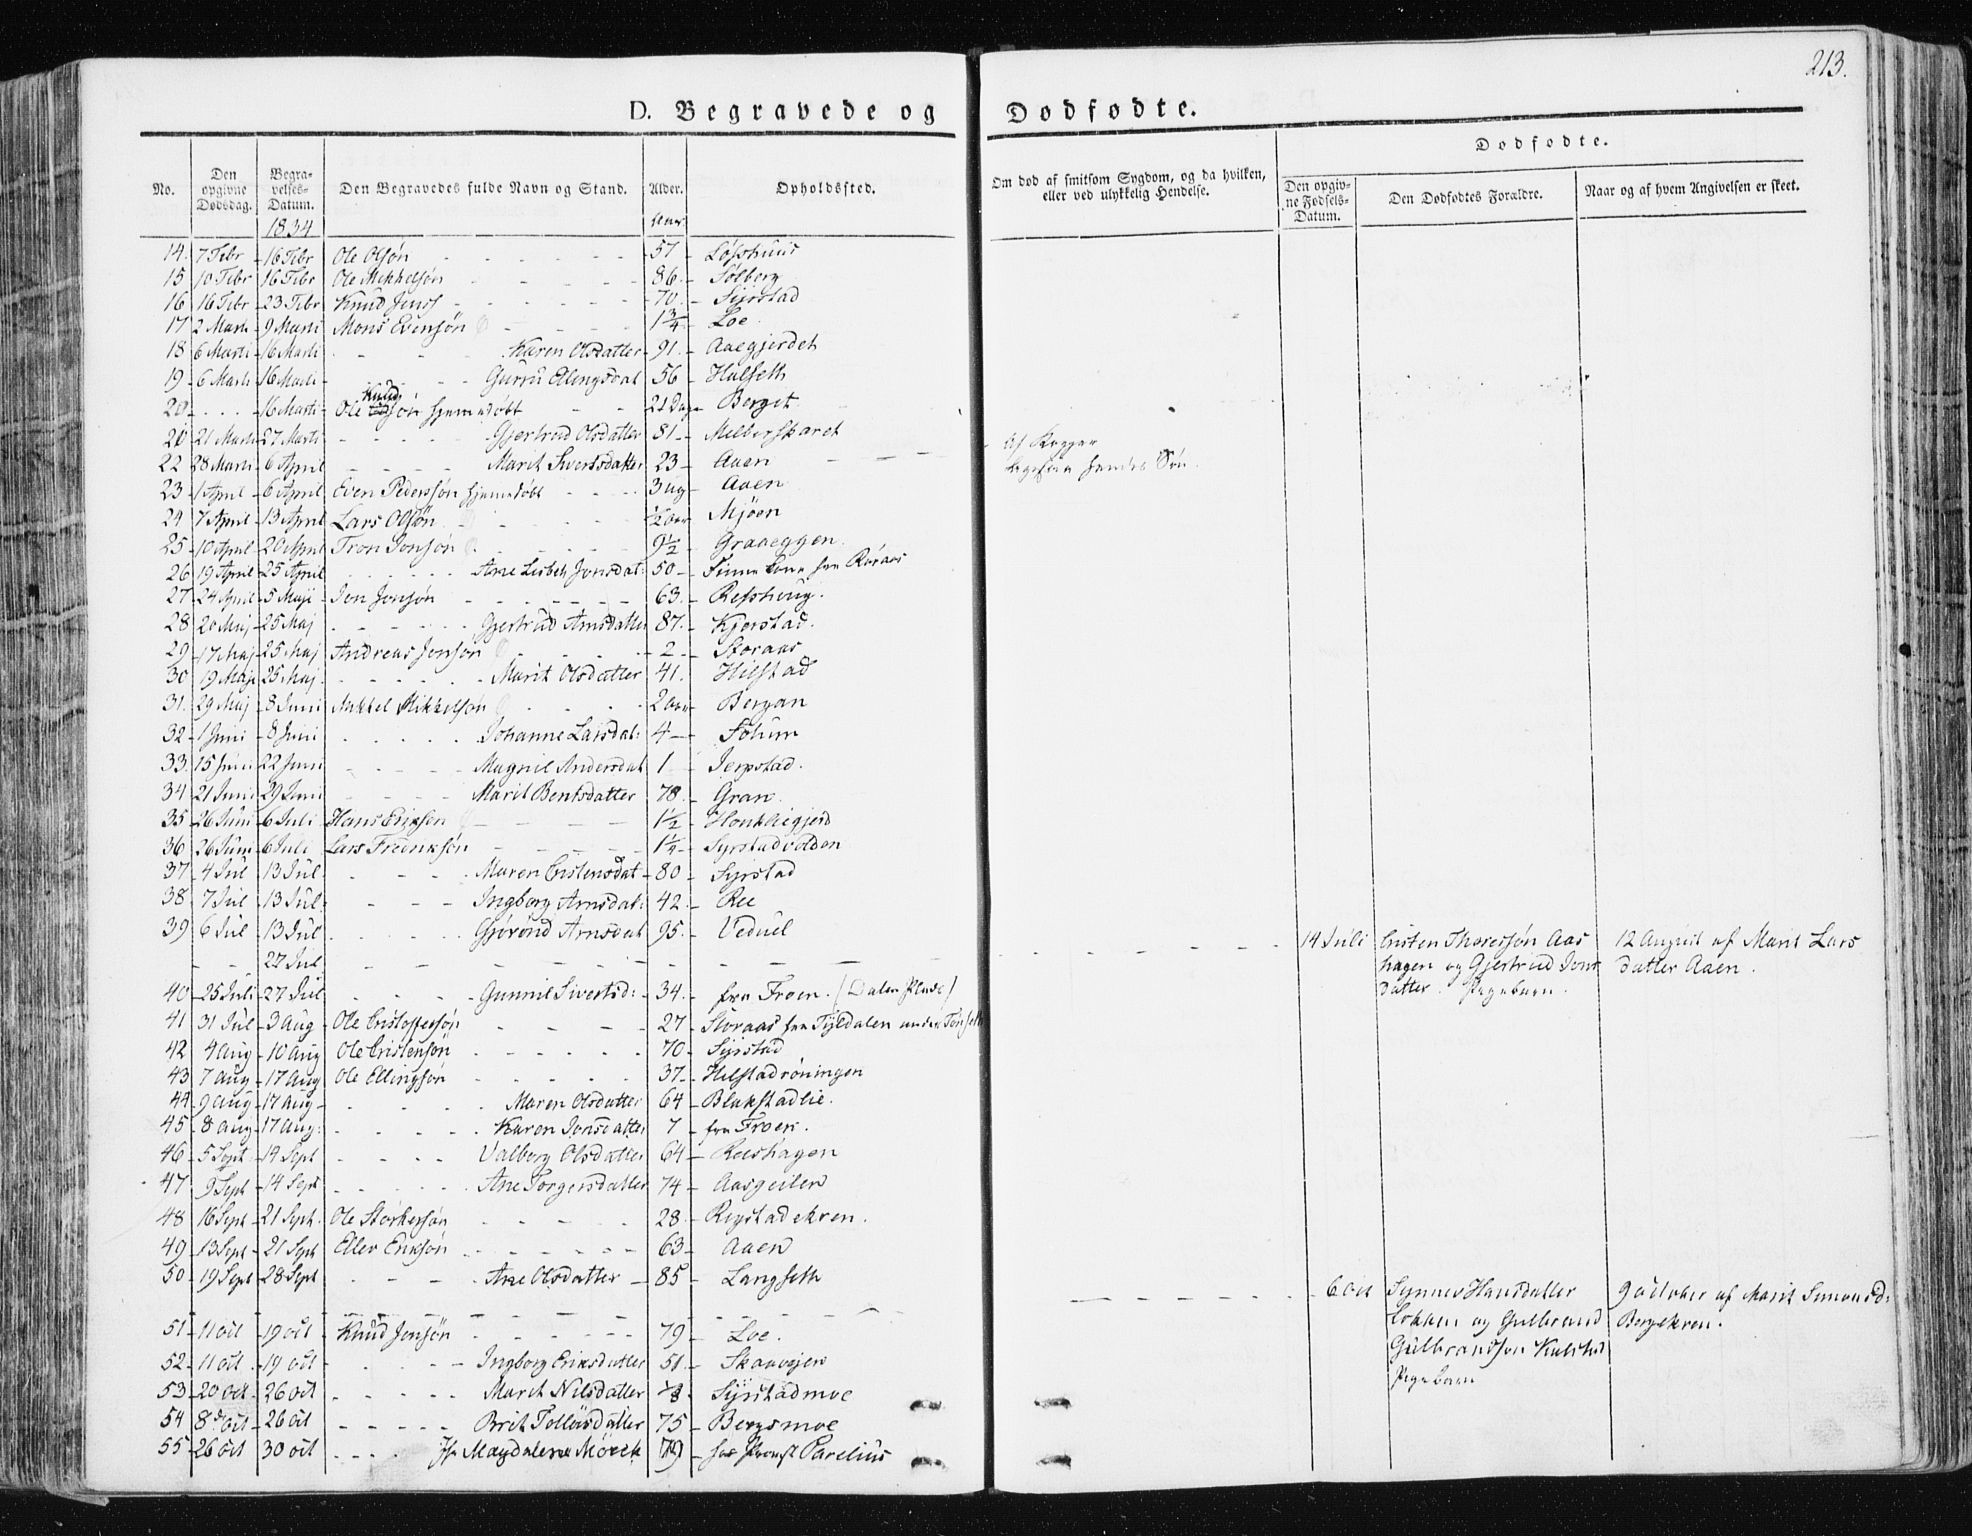 213.
D. Begravede og Dødfødte.
No.
Den opgivne Dødsdag.
Begravelses-Datum.
Den Begravedes fulde Navn og Stand.
Alder.
Opholdssted.
Om død af smitsom Sygdom, og da hvilken, eller ved ulykkelig Hendelse.
Dødfødte.
Den opgivne Fødsels-Datum.
Den Dødfødtes Forældre.
Naar og af hvem Angivelsen er skeet.
1834
14. 7 Febr 16 Febr Ole Olsøn 57 Løsshuus
15 10 Febr 16 Febr Ole Mikkelsøn 86 Solberg
16 16 Febr 23 Febr Knud Jens 70 Syrstad
17 2 Marti 9 Marti Mons Evensøn 1 3/4 Loe
18 6 Marti 16 Marti Karen Olsdatter 91 Aaegjerdet
19 6 Marti 16 Marti Gurru Ellingsdat 56 Halseth
20 16 Marti Ole Knudsøn hjemedøbt 21 Dage Berget
20 21 Marti 27 Marti Gjertrud Olsdatter 81 Mellerskaret
22 28 Marti 6 April Marit Sivertsdatter 23 Aaen
23 1 April 6 April Even Pedersøn hjemedøbt 3 ug Aaen
24 7 April 13 April Lars Olsøn 1/2 aar Mjøen
25 10 April 20 April Tron Jonsøn 9 1/2 Graaeggen
26 19 April 25 April Ane Lisbeth Jonsdat: 50 Finne fra Røraas
27 24 April 5 Maji Jon Jonsøn 63 Ressheug.
28 20 Maj 25 Maj Gjertrud Arnsdatter 87 Kjerstad.
29 17 Maj 25 Maj Andreas Jonsøn 2 Storaas
30 19 Maji 25 Maj Marit Olsdatter 41 Hilstad
31. 29 Maj 8 Juni Mikkel Mikkelsøn 2 aar Bergan
32 1 Juni 8 Juni Johanne Larsdat: 4 Solum
33 15 Juni 22 Juni Magnil Andersdat 1 Jerpstad.
34 21 Juni 29 Juni Marit Bentsdatter 78 Gran
35 26 Juni 6 Juli Hans Eriksen 1 1/2 Honkliegjerd
36 26 Juni 6 Juli Lars Fredriksøn 1 1/4 Syrstadvolden
37 4 Jul 13 Jul Maren Cristensdat 80 Syrstad
38 7 Jul 13 Jul Ingborg Arnsdat: 42 Ree
39 6 Jul 13 Jul Gjørønd Arnsdat 95 Veduel
27 Jul
14 Juli Cristen Thoresøn Aas
hagen og Gjertrud Jons
datter. Pigebarn.
12 August af Marit Lars
datter Aaen.
40 25 Juli 27 Jul Gunnil Sivertsd: 34 fra Froen. (Dalen Plads)
41 31 Jul 3 Aug Ole Cristoffersøn 27 Storaas fra Tyldalen under Tønseth
42 4 Aug 10 Aug Ole Cristensøn 70 Syrstad
43 7 Aug 17 Aug Ole Ellingsøn 37 Hilstadrøningen
44 9 Aug 17 Aug Maren Olsdatter 64 Blakstadlie.
45 8 Aug 17 Aug: Karen Jonsdatter 7 fra Froen.
46 5 Sept 14 Sept Valborg Olsdatter 64 Reeshagen
47 9 Sept 14 Sept Ane Torgersdatter 74 Aasgeilen
48 16 Sept 21 Sept. Ole Størkersøn 28 Rigstadekren.
49 13 Sept 21 Sept Ellev Eriksøn 63 Aaen
50 19 Sept 28 Sept Ane Olsdatter 85 Langseth
6 Oct Synnev Hansdatter
Løkken og Gulbrand
Gulbrandsøn
Pigebarn
9 october af Marit Simonsd:
Bergekren.
51 11 oct 19 oct Knud Jonsøn 79 Loe.
52 11 oct 19 oct Ingborg Eriksdatter 51 Skaavejen
53 20 oct 26 oct Marit Nilsdatter 1/8 Syrstadmoe
54 8de oct 26 oct Brit Tolløvsdatter 75 Bergsmoe
55 26 oct 30 oct Magdalena Mørch 79 hos Provst Parelius